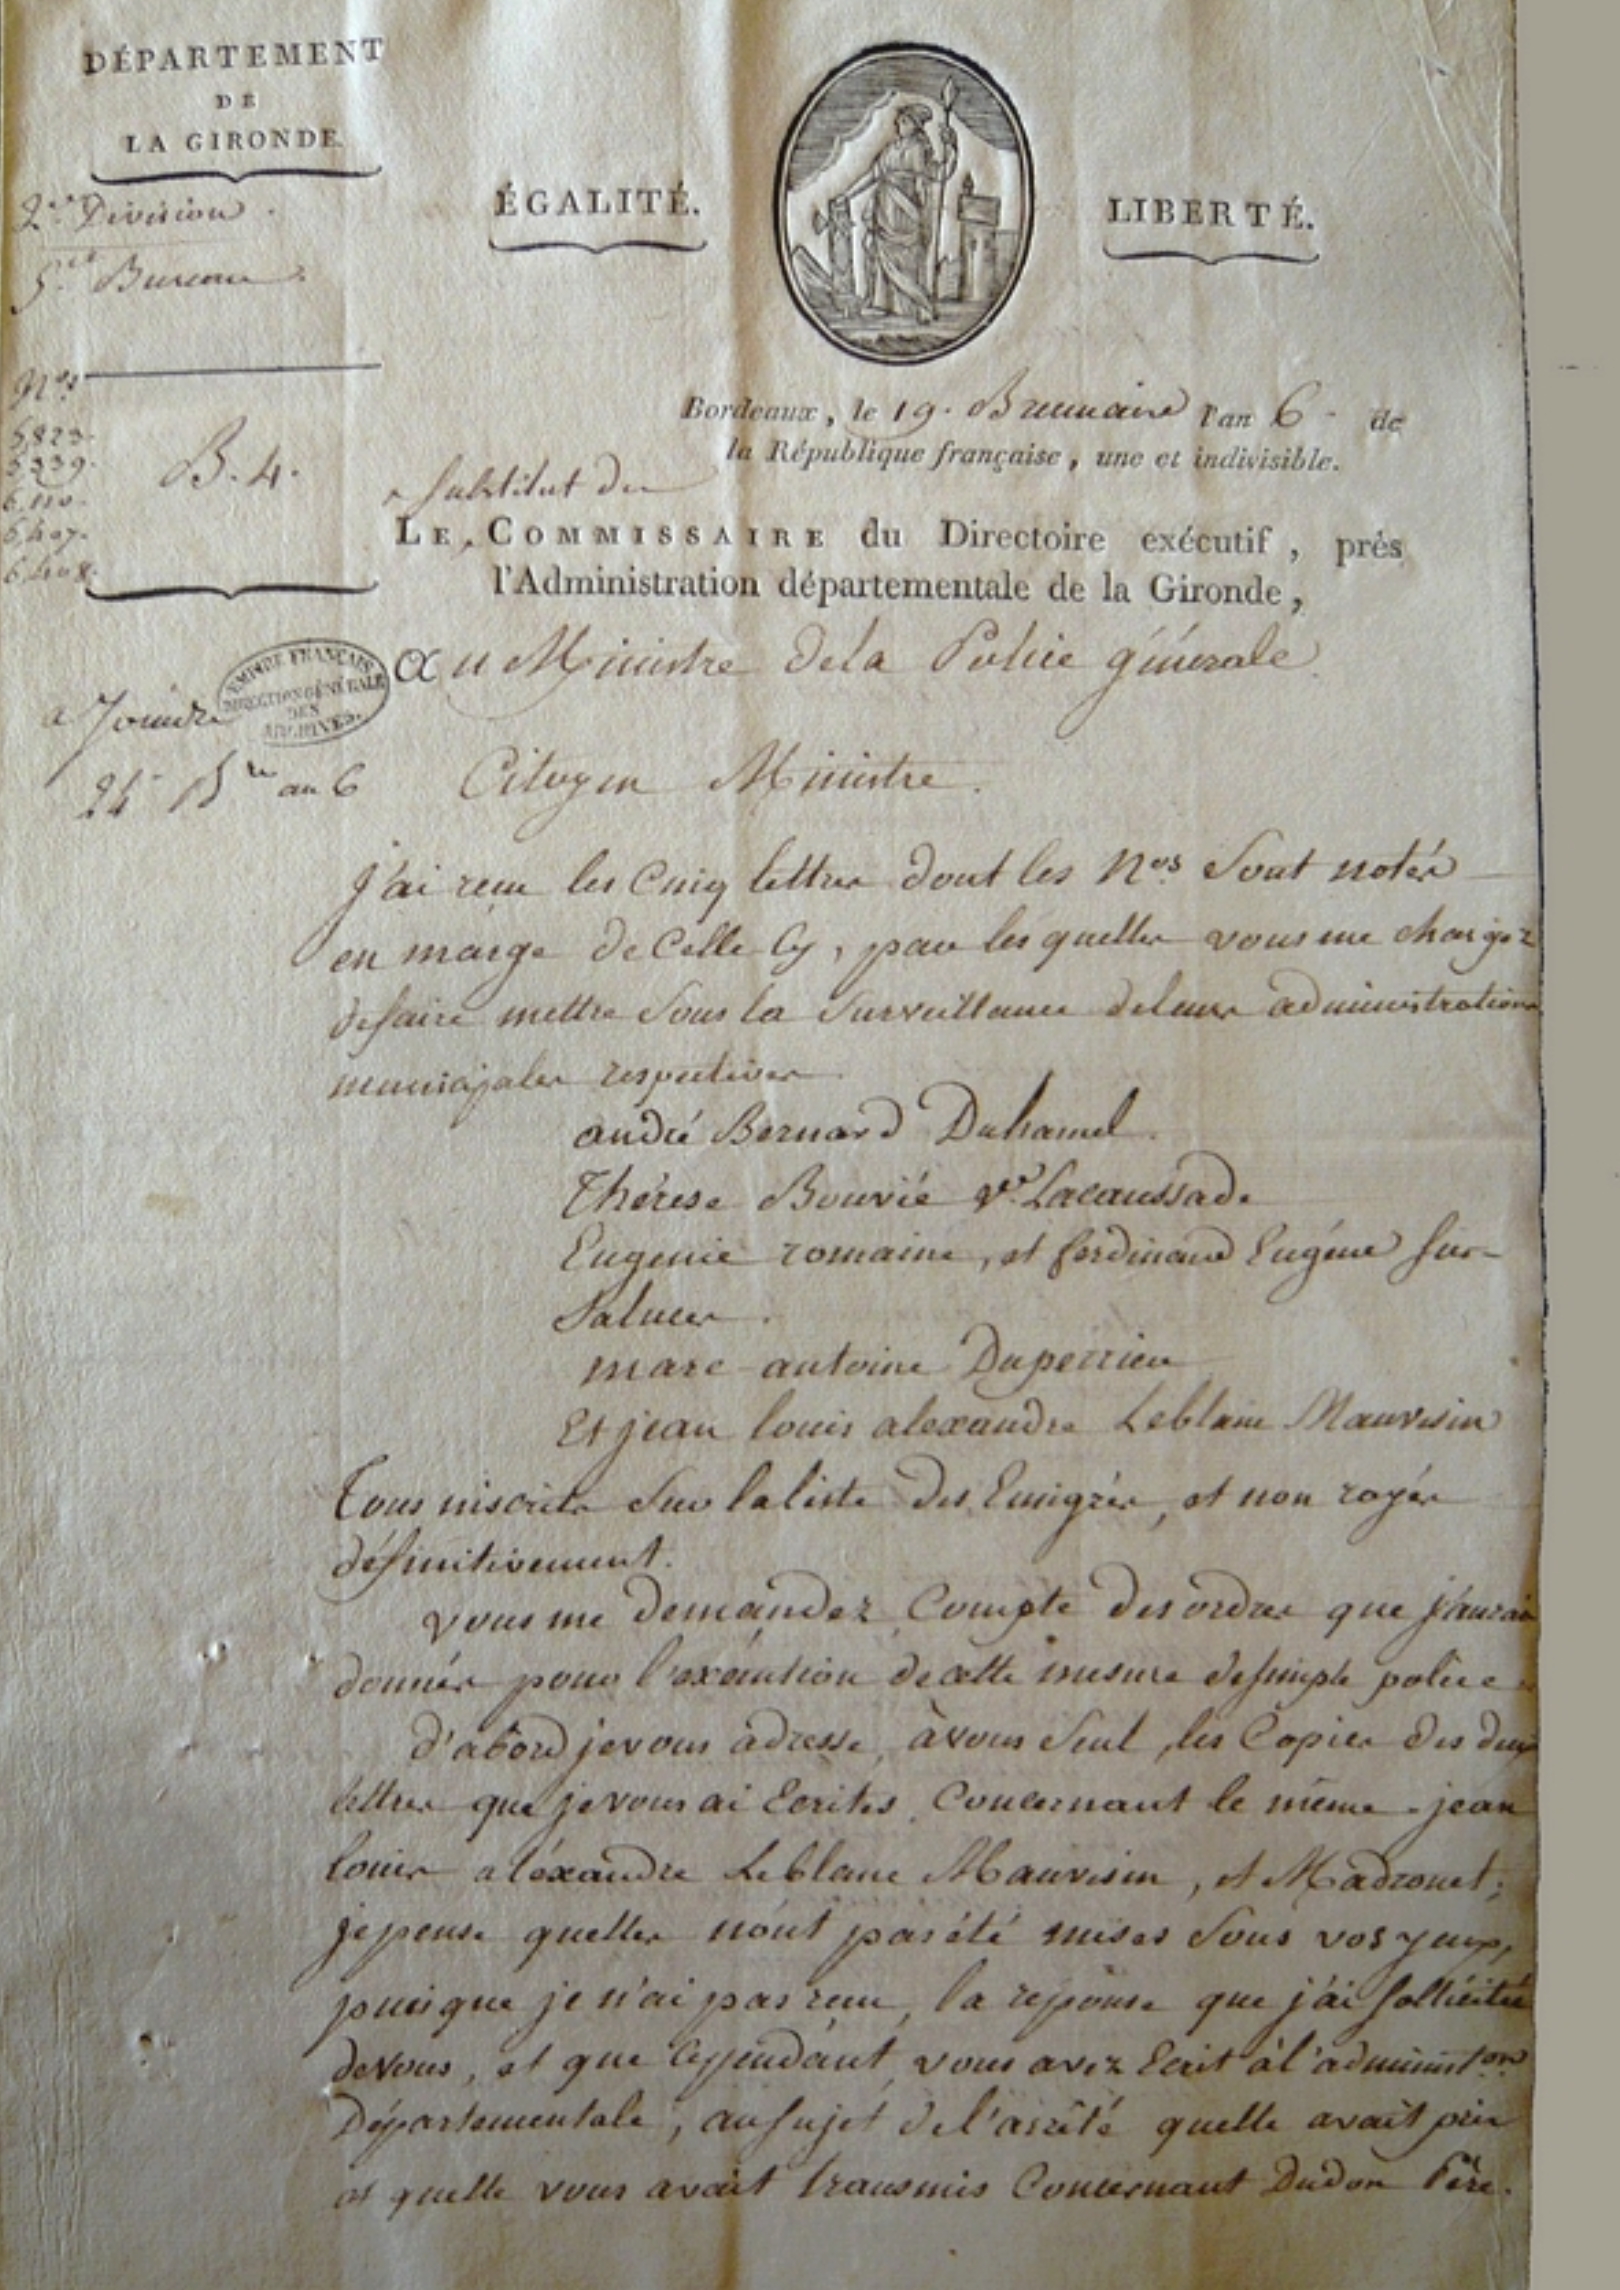 DÉPARTEMENT
DE
LA GIRONDE.
2.e Division.
5.me Bureau.
ÉGALITÉ.
LIBERTÉ.
Nos
B. 4.
Bordeaux, le 19. Brumaire l'an 6. de
la République française, une et indivisible.
Substitut du
LE COMMISSAIRE du Directoire exécutif, prés
l'Administration départementale de la Gironde,
au Ministre de la Police générale
EMPIRE FRANÇAIS
DIRECTION GÉNÉRALE
DES
ARCHIVES.
a Joindre
24 Bre an 6
Citoyen Ministre.
j'ai reçu les Cinq lettres dont les Nos. Sont notés
en marge de Celle Cy, par les quelles vous me chargez
de faire mettre Sous la Surveillance de leurs administrations
municipales respectives
andré Bernard Duhamel.
Thérese Bouvié ve. Lacaussade
Eugenie romaine, et ferdinand Eugéne fur-
Saluces.
marc-antoine Duperrieu
Et jean louis alexandre Leblanc Mauvesin
Tous inscrits Sur la liste des Emigrés, et non rayés
définitivement.
vous me demandez Compte des ordres que j'aurais
donnés pour l'exécution de cette mesure de simple police
d'abord je vous adresse, à vous Seul, les Copies des deux
lettres que je vous ai Ecrites, Concernant le même jean
louis aléxandre Leblanc Mauvesin, et Madronet;
je pense quelles n'ont pas été mises Sous vos yeux,
puisque je n'ai pas reçu, la reponse que j'ai sollicitée
de vous, et que Cependant vous avez Ecrit à l'administon.
Départementale, au sujet de l'arrêté quelle avait pris
et quelle vous avait transmis Concernant Dudon Pére.